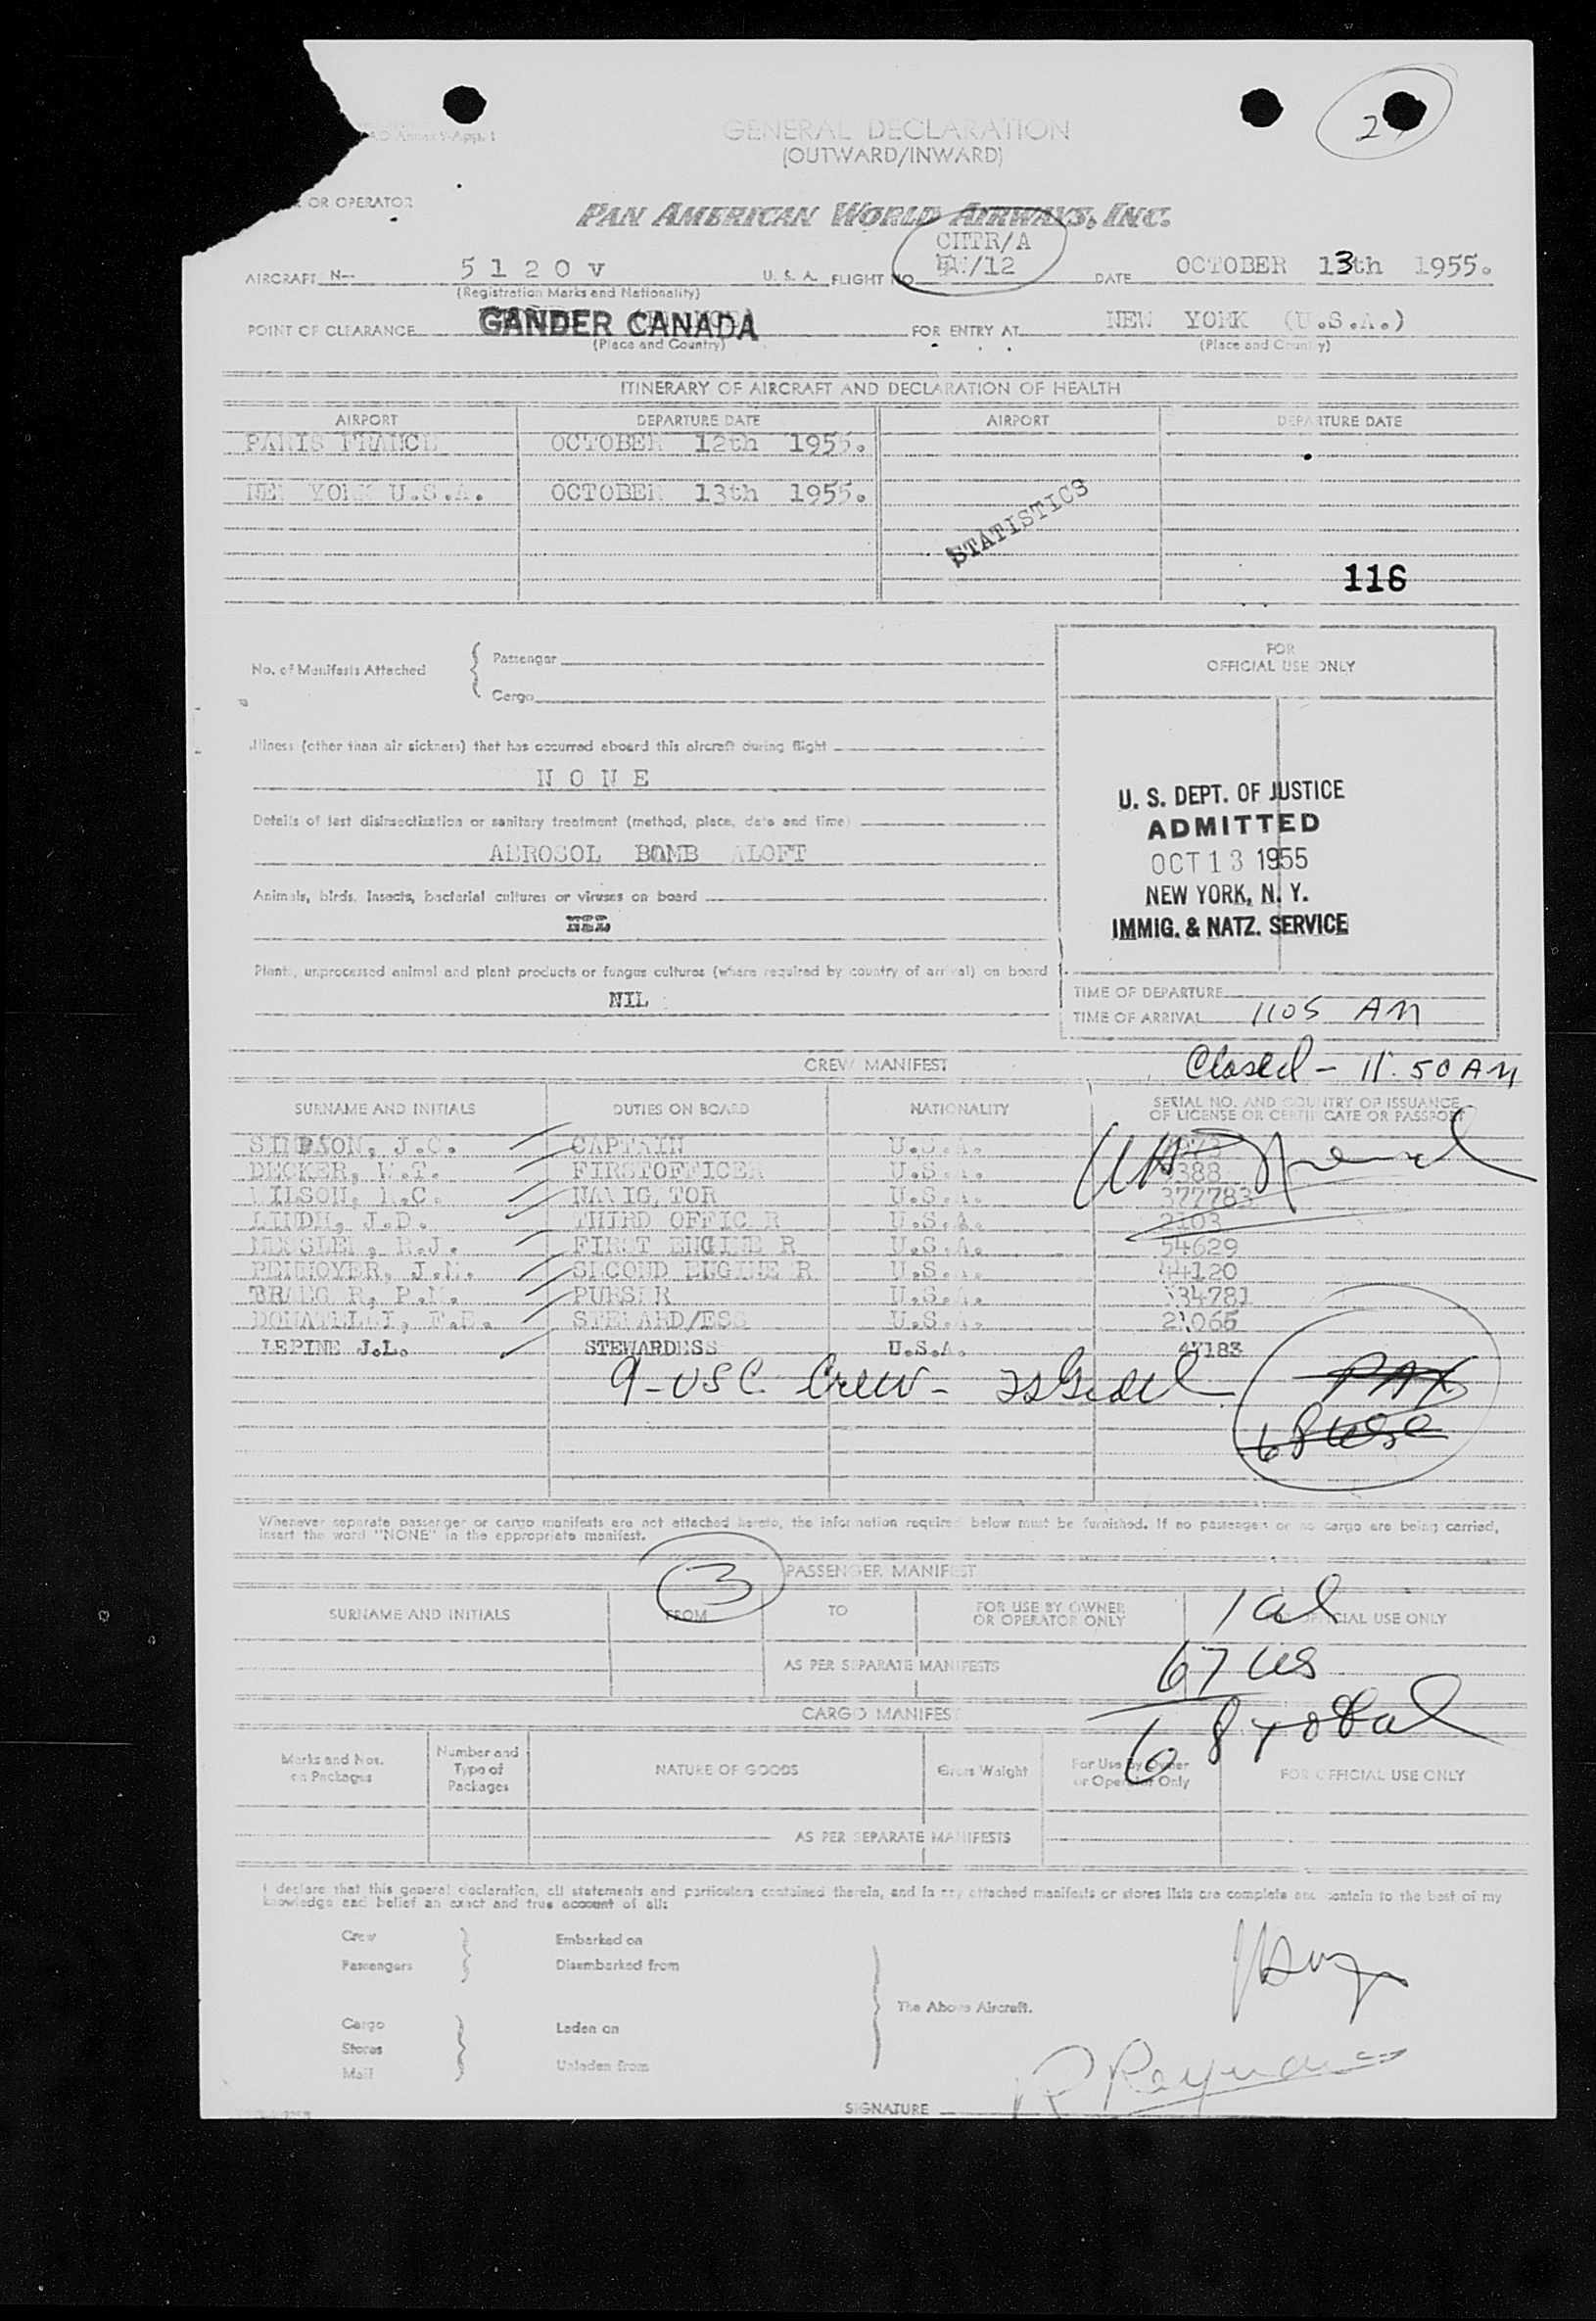 GENERAL DECLARATION
(OUTWARD/INWARD)
2
OR OPERATOR
PAN AMERICAN WORLD AIRWAYS, INC.
CHTR/A
AIRCRAFT N- 5 1 2 0 V U. S. A. FLIGHT NO /12 DATE OCTOBER 13th 1955.
(Registration Marks and Nationality)
POINT OF CLEARANCE GANDER CANADA FOR ENTRY AT NEW YORK (U.S.A.)
(Place and Country) (Place and Country)
ITINERARY OF AIRCRAFT AND DECLARATION OF HEALTH
AIRPORT DEPARTURE DATE AIRPORT DEPARTURE DATE
PARIS FRANCE OCTOBER 12th 1955.
NEW YORK U.S.A. OCTOBER 13th 1955.
STATISTICS
116
No. of Manifests Attached
Passenger
Cargo
FOR
OFFICIAL USE ONLY
Illness (other than air sickness) that has occurred aboard this aircraft during flight
N O N E
Details of last disinsectization or sanitary treatment (method, place, date and time)
AEROSOL BOMB ALOFT
Animals, birds, insects, bacterial cultures or viruses on board
Plants, unprocessed animal and plant products or fungus cultures (where required by country of arrival) on board
NIL
U. S. DEPT. OF JUSTICE
ADMITTED
OCT 13 1955
NEW YORK, N. Y.
IMMIG. & NATZ. SERVICE
TIME OF DEPARTURE
TIME OF ARRIVAL 1105 AM
CREW MANIFEST
Closed - 11:50 AM
SURNAME AND INITIALS DUTIES ON BOARD NATIONALITY SERIAL NO. AND COUNTRY OF ISSUANCE
OF LICENSE OR CERTIFICATE OR PASSPORT
J.C. CAPTAIN U.S.A.
DECKER, W.T. FIRSTOFFICER U.S.A. 388
WILSON, C. NAVIGATOR U.S.A. 377783
LINDH, J.D. THIRD OFFICER U.S.A. 2103
R.J. FIRST ENGINEER U.S.A. 54629
PENNOYER, J.N. SECOND ENGINEER U.S.A. 44120
P.M. PURSER U.S.A. 34781
DONATELLI, F.E. STEWARD/ESS U.S.A. 21065
LEPINE J.L. STEWARDESS U.S.A. 47183
9-USC Crew-
PAX
68 usc
Whenever separate passenger or cargo manifests are not attached hereto, the information required below must be furnished. If no passengers or no cargo are being carried,
insert the word "NONE" in the appropriate manifest.
3
PASSENGER MANIFEST
SURNAME AND INITIALS FROM TO FOR USE BY OWNER
OR OPERATOR ONLY FOR OFFICIAL USE ONLY
1 al
67 us
68 total
AS PER SEPARATE MANIFESTS
CARGO MANIFEST
Marks and Nos.
on Packages Number and
Type of
Packages NATURE OF GOODS Gross Weight For Use By Owner
or Operator Only FOR OFFICIAL USE ONLY
AS PER SEPARATE MANIFESTS
I declare that this general declaration, all statements and particulars contained therein, and in any attached manifests or stores lists are complete and contain to the best of my
knowledge and belief an exact and true account of all:
Crew
Passengers
Embarked on
Disembarked from
The Above Aircraft.
Cargo
Stores
Mail
Laden on
Unladen from
SIGNATURE